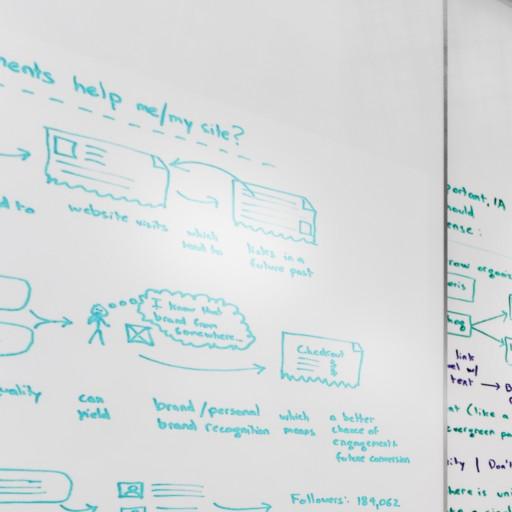 ments help me/my site?
d to
website visits
which
lead to
links in a
future post
I know that
brand from
somewhere...
Checkout
$
$
$
uality
can
yield
brand/personal
brand recognition
which
means
a better
chance of
engagement &
future conversion
Followers: 184,062
portant, IA
hould
ense:
raw organic
link
text → B
at (like a
evergreen pa
ity | Don't
here is uni